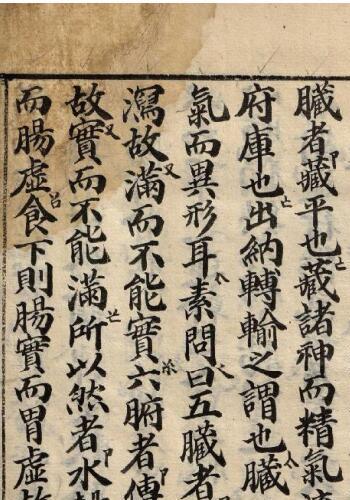 臟者藏平也藏諸神而精氣
府庫也出納轉輸之謂也臟
氣而異形耳素問曰五臟者
瀉故滿而不能實六腑者傳
故實而不能滿所以然者水
而腸虛食下則腸實而胃虛